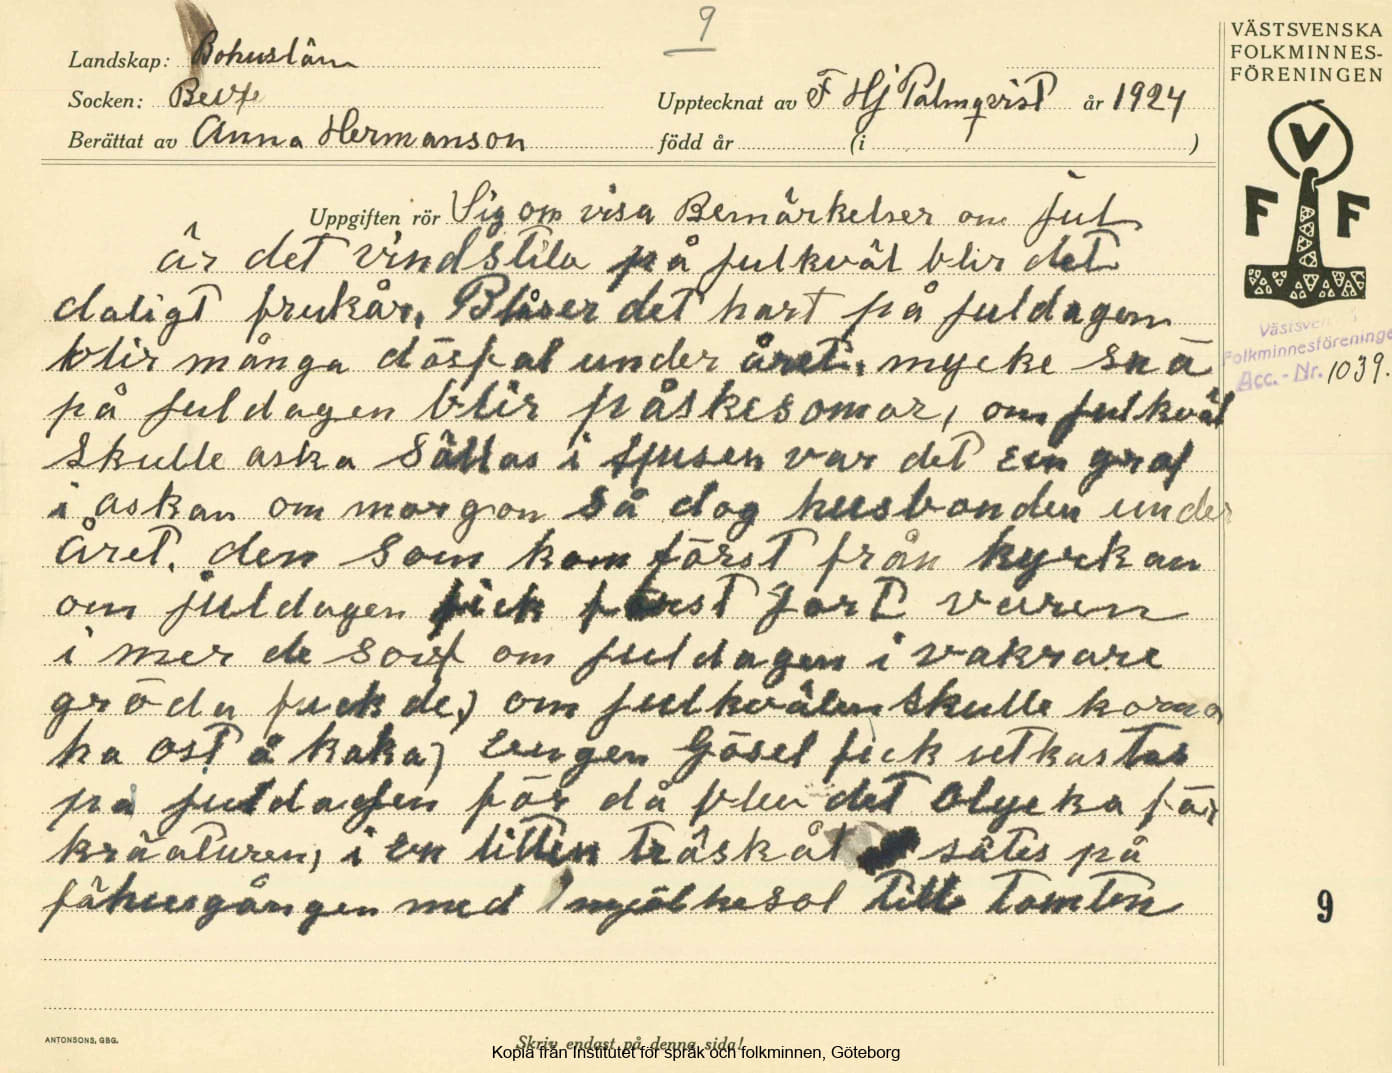 9
Landskap: Bohuslän
Socken: Berfe
Upptecknat av F Hj Palmqvist år 1924
Berättat av Anna Hermanson född år (i )
VÄSTSVENSKA
FOLKMINNES-
FÖRENINGEN
V
F F
Västsven
Folkminnesföreninge
Acc.-Nr. 1039.
Uppgiften rör Sig om visa Bemärkelser om jul
är det vindstila på julkväl blir det
daligt frukår, Blåser det hart på juldagen
blir många dösfal under året, mycke snö
på juldagen blir påskesomar, om julkväl
skulle aska sållas i spisen var det ein graf
i askan om morgon så dog husbonden under
året. den som kom först från kyrkan
om juldagen fick först gort våren
i mer de sov om juldagen i vakrare
gröda fick de, om julkvälen skulle korna
ha ost å kaka, eingen Gösel fick utkastas
på juldagen för då blev det olycka för
kräaturen, i en litten träskål sätes på
fähusgången med mjölkesol till Tomten
9
ANTONSONS, GBG.
Skriv endast på denna sida!
Kopia från Institutet för språk och folkminnen, Göteborg